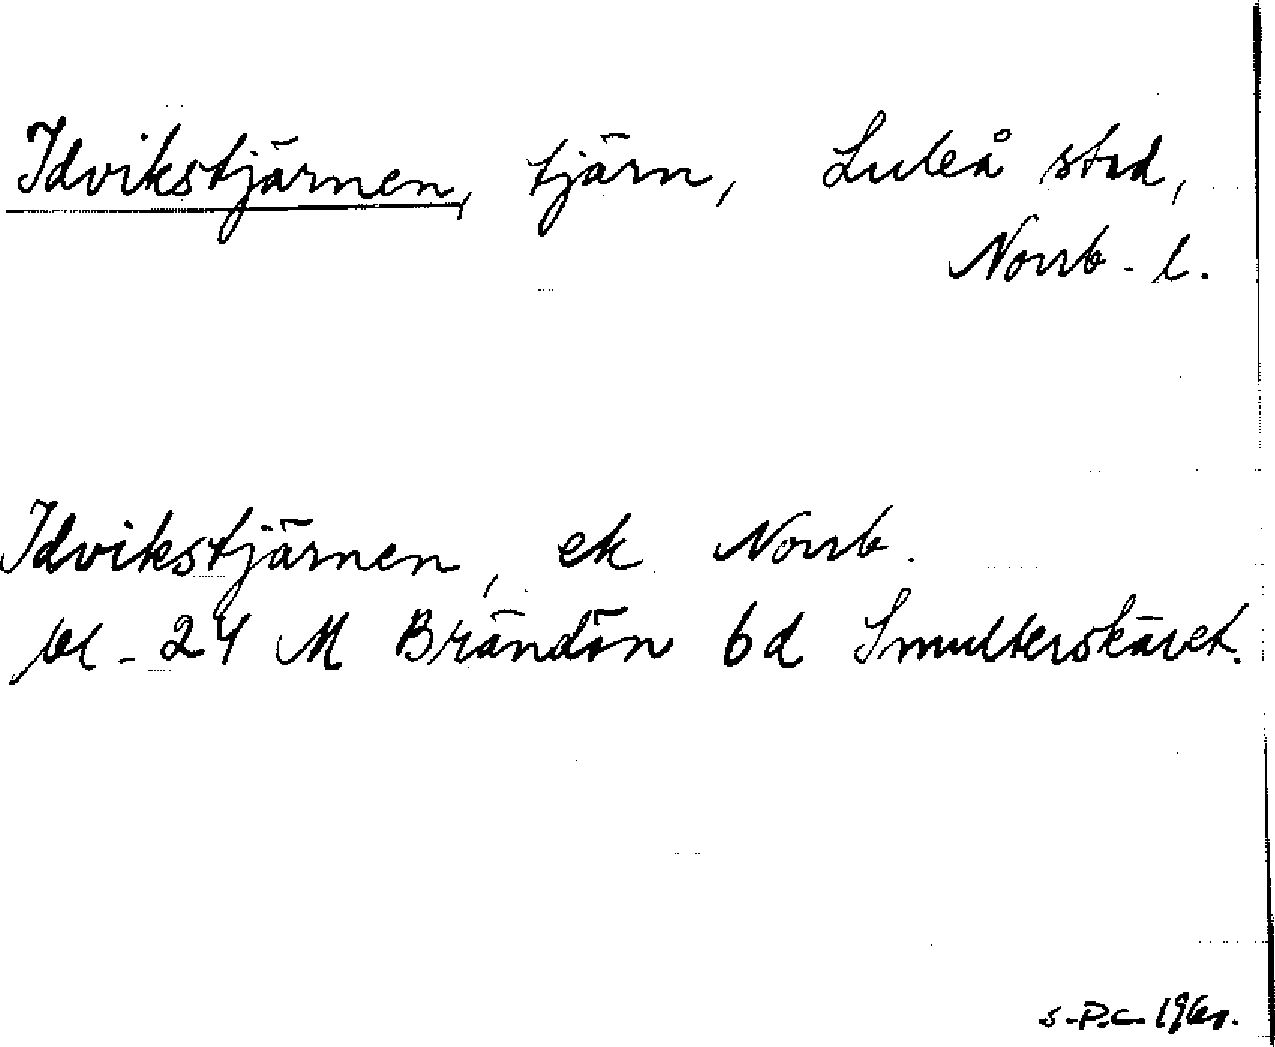 Idvikstjärnen, tjärn, Luleå stad,
Norrb. l.
Idvikstjärnen, ek Norrb.
bl. 24 M Brändön 6d Smulterskäret.
S.P.C.